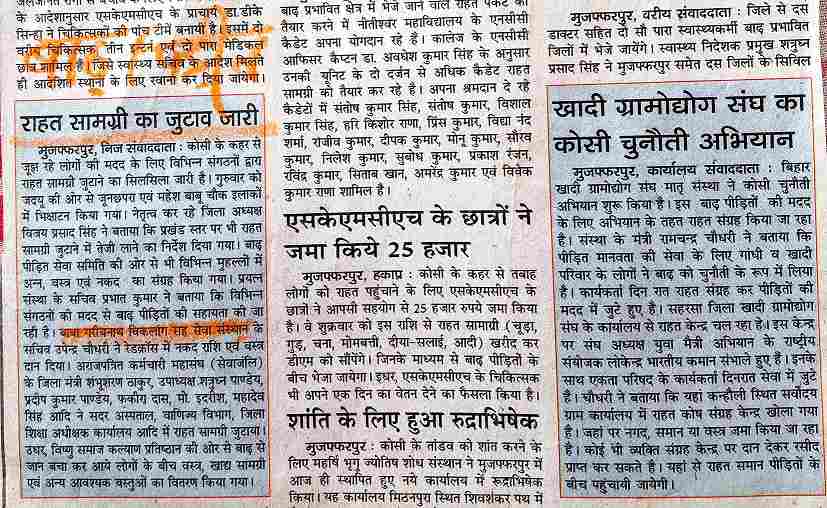 आदेशानुसार एसकेएमसीएच के प्राचार्य डा.डीके
सिन्हा ने चिकित्सकों की पांच टीमें बनायी है। इसमें दो
वरीय चिकित्सक, तीन इन्टर्न एवं दो पारा मेडिकल
छात्र शामिल हैं। जिसे स्वास्थ्य सचिव के आदेश मिलते
ही आदेशित स्थानों के लिए रवाना कर दिया जायेगा।
राहत सामग्री का जुटाव जारी
मुजफ्फरपुर, निज संवाददाता: कोसी के कहर से
जूझ रहे लोगों की मदद के लिए विभिन्न संगठनों द्वारा
राहत सामग्री जुटाने का सिलसिला जारी है। गुरुवार को
जदयू की ओर से जूनछपरा एवं महेश बाबू चौक इलाकों
में भिक्षाटन किया गया। नेतृत्व कर रहे जिला अध्यक्ष
विजय प्रसाद सिंह ने बताया कि प्रखंड स्तर पर भी राहत
सामग्री जुटाने में तेजी लाने का निर्देश दिया गया। बाढ़
पीड़ित सेवा समिति की ओर से भी विभिन्न मुहल्लों में
अन्न, वस्त्र एवं नकद का संग्रह किया गया। प्रयत्न
संस्था के सचिव प्रभात कुमार ने बताया कि विभिन्न
संगठनों की मदद से बाढ़ पीड़ितों की सहायता की जा
रही है। बाबा गरीबनाथ विकलांग सह सेवा संस्थान के
सचिव उपेन्द्र चौधरी ने रेडक्रॉस में नकद राशि एवं वस्त्र
दान दिया। अराजपत्रित कर्मचारी महासंघ (सेवांजलि)
के जिला मंत्री शंभूशरण ठाकुर, उपाध्यक्ष शत्रुघ्न पाण्डेय,
प्रदीप कुमार पाण्डेय, फकीरा दास, मो. इदरीश, महादेव
सिंह आदि ने सदर अस्पताल, वाणिज्य विभाग, जिला
शिक्षा अधीक्षक कार्यालय आदि में राहत सामग्री जुटाया।
उधर, विष्णु समाज कल्याण प्रतिष्ठान की ओर से बाढ़ से
जान बचा कर आये लोगों के बीच वस्त्र, खाद्य सामग्री
एवं अन्य आवश्यक वस्तुओं का वितरण किया गया।
बाढ़ प्रभावित क्षेत्र में भेजे जाने वाले राहत पैकेट को
तैयार करने में नीतीश्वर महाविद्यालय के एनसीसी
कैडेट अपना योगदान दे रहे हैं। कालेज के एनसीसी
आफिसर कैप्टन डा. अवधेश कुमार सिंह के अनुसार
उनकी यूनिट के दो दर्जन से अधिक कैडेट राहत
सामग्री को तैयार कर रहे है। अपना श्रमदान दे रहे
कैडेटों में संतोष कुमार सिंह, संतोष कुमार, विशाल
कुमार सिंह, हरि किशोर राणा, प्रिंस कुमार, विद्या नंद
शर्मा, राजीव कुमार, दीपक कुमार, मोनू कुमार, सौरव
कुमार, निलेश कुमार, सुबोध कुमार, प्रकाश रंजन,
रविंद्र कुमार, सिताब खान, अमरेंद्र कुमार एवं विवेक
कुमार राणा शामिल है।
एसकेएमसीएच के छात्रों ने
जमा किये 25 हजार
मुजफ्फरपुर, हकाप्र : कोसी के कहर से तबाह
लोगों को राहत पहुंचाने के लिए एसकेएमसीएच के
छात्रों ने आपसी सहयोग से 25 हजार रुपये जमा किया
है। वे शुक्रवार को इस राशि से राहत सामग्री (चूड़ा,
गुड़, चना, मोमबत्ती, दीया-सलाई, आदी) खरीद कर
डीएम को सौंपेंगे। जिनके माध्यम से बाढ़ पीड़ितों के
बीच भेजा जायेगा। इधर, एसकेएमसीएच के चिकित्सक
भी अपने एक दिन का वेतन देने का फैसला किया है।
शांति के लिए हुआ रुद्राभिषेक
मुजफ्फरपुर : कोसी के तांडव को शांत करने के
लिए महर्षि भृगु ज्योतिष शोध संस्थान ने मुजफ्फरपुर में
आज ही स्थापित हुए नये कार्यालय में रूद्राभिषेक
किया। यह कार्यालय मिठनपुरा स्थित शिवशंकर पथ में
मुजफ्फरपुर, वरीय संवाददाता: जिले से दस
डाक्टर सहित दो सौ पारा स्वास्थ्यकर्मी बाढ़ प्रभावित
जिलों में भेजे जायेंगे। स्वास्थ्य निदेशक प्रमुख शत्रुघ्न
प्रसाद सिंह ने मुजफ्फरपुर समेत दस जिलों के सिविल
खादी ग्रामोद्योग संघ का
कोसी चुनौती अभियान
मुजफ्फरपुर, कार्यालय संवाददाता: बिहार
खादी ग्रामोद्योग संघ मातृ संस्था ने कोसी चुनौती
अभियान शुरू किया है। इस बाढ़ पीड़ितों की मदद
के लिए अभियान के तहत राहत संग्रह किया जा रहा
है। संस्था के मंत्री रामचन्द्र चौधरी ने बताया कि
पीड़ित मानवता की सेवा के लिए गांधी व खादी
परिवार के लोगों ने बाढ़ को चुनौती के रूप में लिया
है। कार्यकर्ता दिन रात राहत संग्रह कर पीड़ितों की
मदद में जुटे हुए है। सहरसा जिला खादी ग्रामोद्योग
संघ के कार्यालय से राहत केन्द्र चल रहा है। इस केन्द्र
पर संघ अध्यक्ष युवा मैत्री अभियान के राष्ट्रीय
संयोजक लोकेन्द्र भारतीय कमान संभाले हुए है। इनके
साथ एकता परिषद के कार्यकर्ता दिनरात सेवा में जुटे
है। चौधरी ने बताया कि यहां कन्हौली स्थित सर्वोदय
ग्राम कार्यालय में राहत कोष संग्रह केन्द्र खोला गया
है। जहां पर नगद, समान या वस्त्र जमा किया जा रहा
है। कोई भी व्यक्ति संग्रह केन्द्र पर दान देकर रसीद
प्राप्त कर सकते है। यहां से राहत समान पीड़ितों के
बीच पहुंचायी जायेगी।